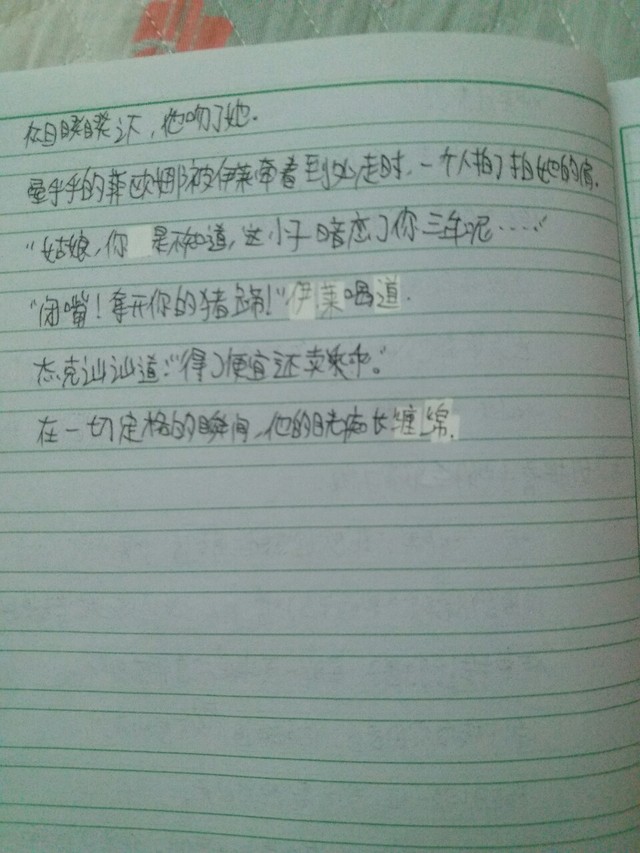 众目睽睽之下，他吻了她。
晕乎乎的菲欧娜被伊莱牵着到处走时，一个人拍了拍她的肩，
“姑娘，你是不知道，这小子暗恋了你三年呢……”
“闭嘴！拿开你的猪蹄！”伊莱喝道.
杰克讪讪道：“得了便宜还卖乖。”
在一切定格的瞬间，他的目光悠长缠绵.